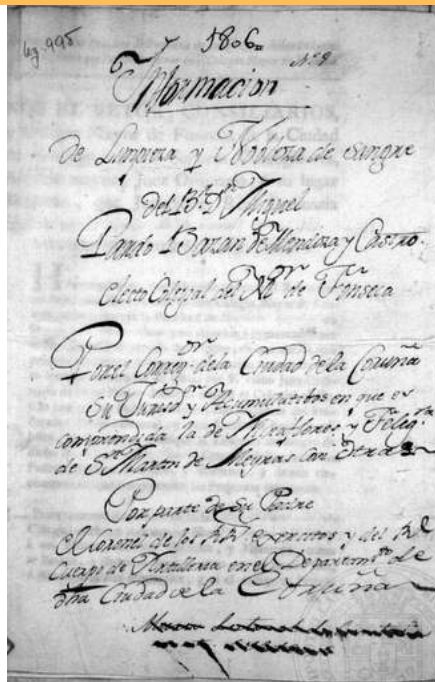 Leg. 995
1806=
Nº 9
Informacion
De Limpieza y Nobleza de sangre
del B.r D.n Miguel
Pardo Bazan de Mendoza y Castro
electo Colegial del M.or de Fonseca
Por el Correg.or de la Ciudad de la Coruña
Su Jurisd.n y Acumulatos en que es
comprendida la de Miraflores y Felig.a
de S.n Martin de Meyras con otras
Por parte de su Padre
el Coronel de los R.s Exercitos y del R.l
Cuerpo de Artilleria en el Departam.to de
dha Ciudad de la Coruña